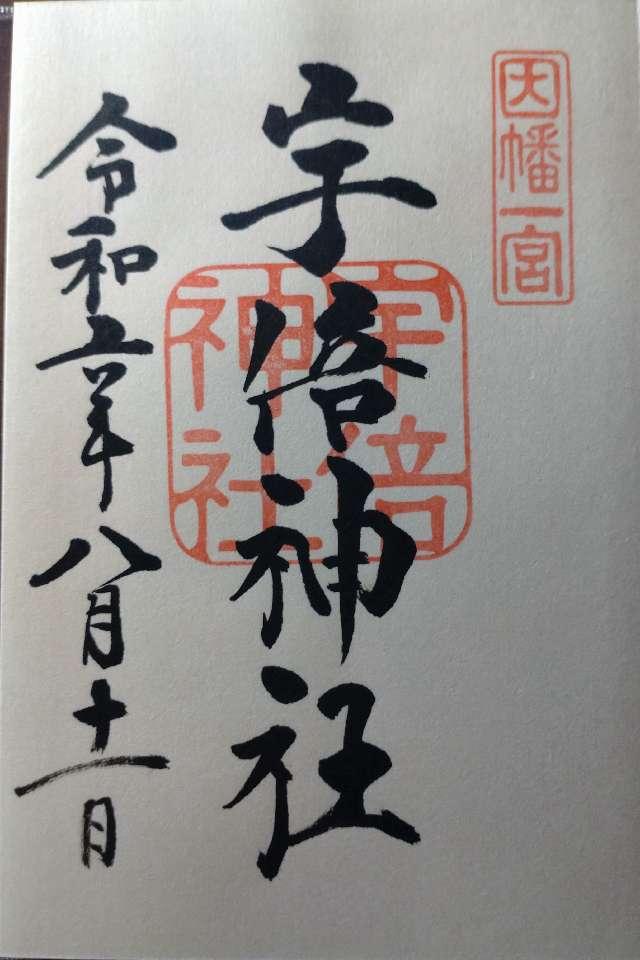 因幡一宮
宇倍神社
宇倍
神社
令和五年八月十一日